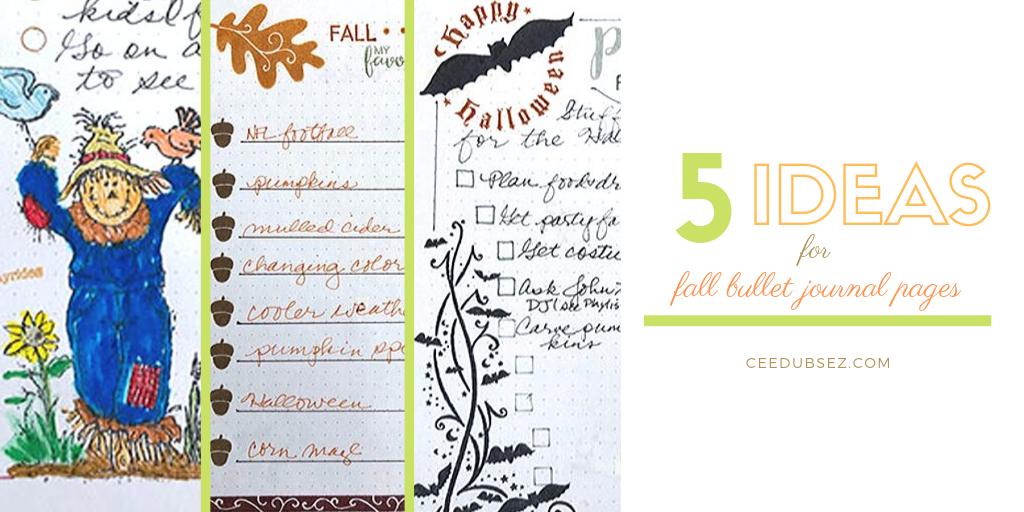 kids!
Go on a
to see
FALL
MY
NFL football
pumpkins
mulled cider
changing color
cooler weath
pumpkin spi
Halloween
corn maze
Happy
Halloween
Stuff
for the Hal
Plan food & dr
Get party fa
Get costu
Ask John
DJ (see Playlis
Carve pum
kins
5 IDEAS
for
fall bullet journal pages
CEEDUBSEZ.COM